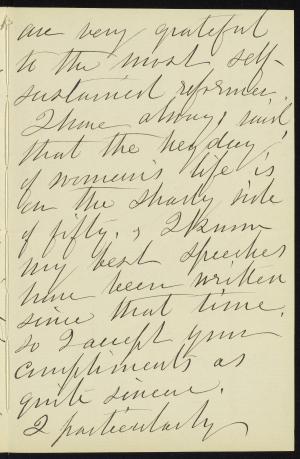 are very grateful
to the most self-
sustained reformer.
I have always said
that the heyday
of woman's life is
on the shady side
of fifty, & I know
my best speeches
have been written
since that time,
so I accept your
compliments as
quite sincere.
I particularly